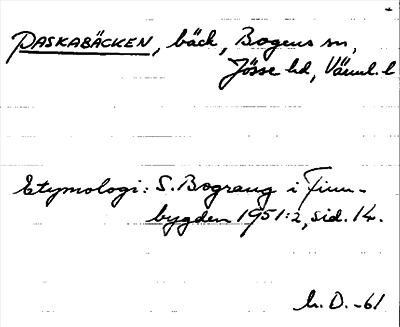 PASKABÄCKEN, bäck, Bogens sn,
Jösse hd, Värml. l
Etymologi: S. Bograng i Finn-
bygden 1951:2, sid. 14.
h. D. -61